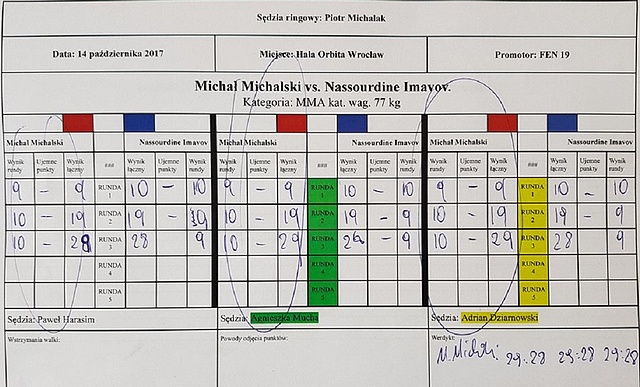 Sędzia ringowy: Piotr Michalak
Data: 14 października 2017 Miejsce: Hala Orbita Wrocław Promotor: FEN 19
Michał Michalski vs. Nassourdine Imavov.
Kategoria: MMA kat. wag. 77 kg
Michał Michalski Nassourdine Imavov Michał Michalski Nassourdine Imavov Michał Michalski Nassourdine Imavov
Wynik rundy Ujemne punkty Wynik łączny ### Wynik łączny Ujemne punkty Wynik rundy Wynik rundy Ujemne punkty Wynik łączny ### Wynik łączny Ujemne punkty Wynik rundy Wynik rundy Ujemne punkty Wynik łączny ### Wynik łączny Ujemne punkty Wynik rundy
9 – 9 RUNDA 1 10 – 10 9 – 9 RUNDA 1 10 – 10 9 – 9 RUNDA 1 10 – 10
10 – 19 RUNDA 2 19 – 10 – 19 RUNDA 2 19 – 9 10 – 19 RUNDA 2 19 – 9
10 – 28 RUNDA 3 28 9 10 – 29 RUNDA 3 – 9 10 – 29 RUNDA 3 28 9
RUNDA 4 RUNDA 4 RUNDA 4
RUNDA 5 RUNDA 5 RUNDA 5
Sędzia: Paweł Harasim Sędzia: Agnieszka Mucha Sędzia: Adrian Dziarnowski
Wstrzymania walki: Powody odjęcia punktów: Werdykt:
29-28 29-28 29-28